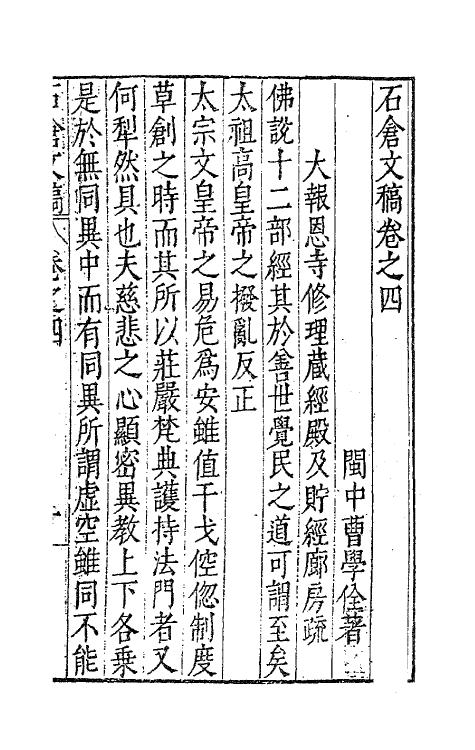 石倉文稿卷之四
閩中曹學佺著
大報恩寺修理藏經殿及貯經廊房疏
佛說十二部經其於善世覺民之道可謂至矣
太祖高皇帝之撥亂反正
太宗文皇帝之易危爲安雖值干戈倥偬制度
草創之時而其所以莊嚴梵典護持法門者又
何犁然具也夫慈悲之心顯密異教上下各乗
是於無同異中而有同異所謂虛空雖同不能
石倉文稿 卷之四 一